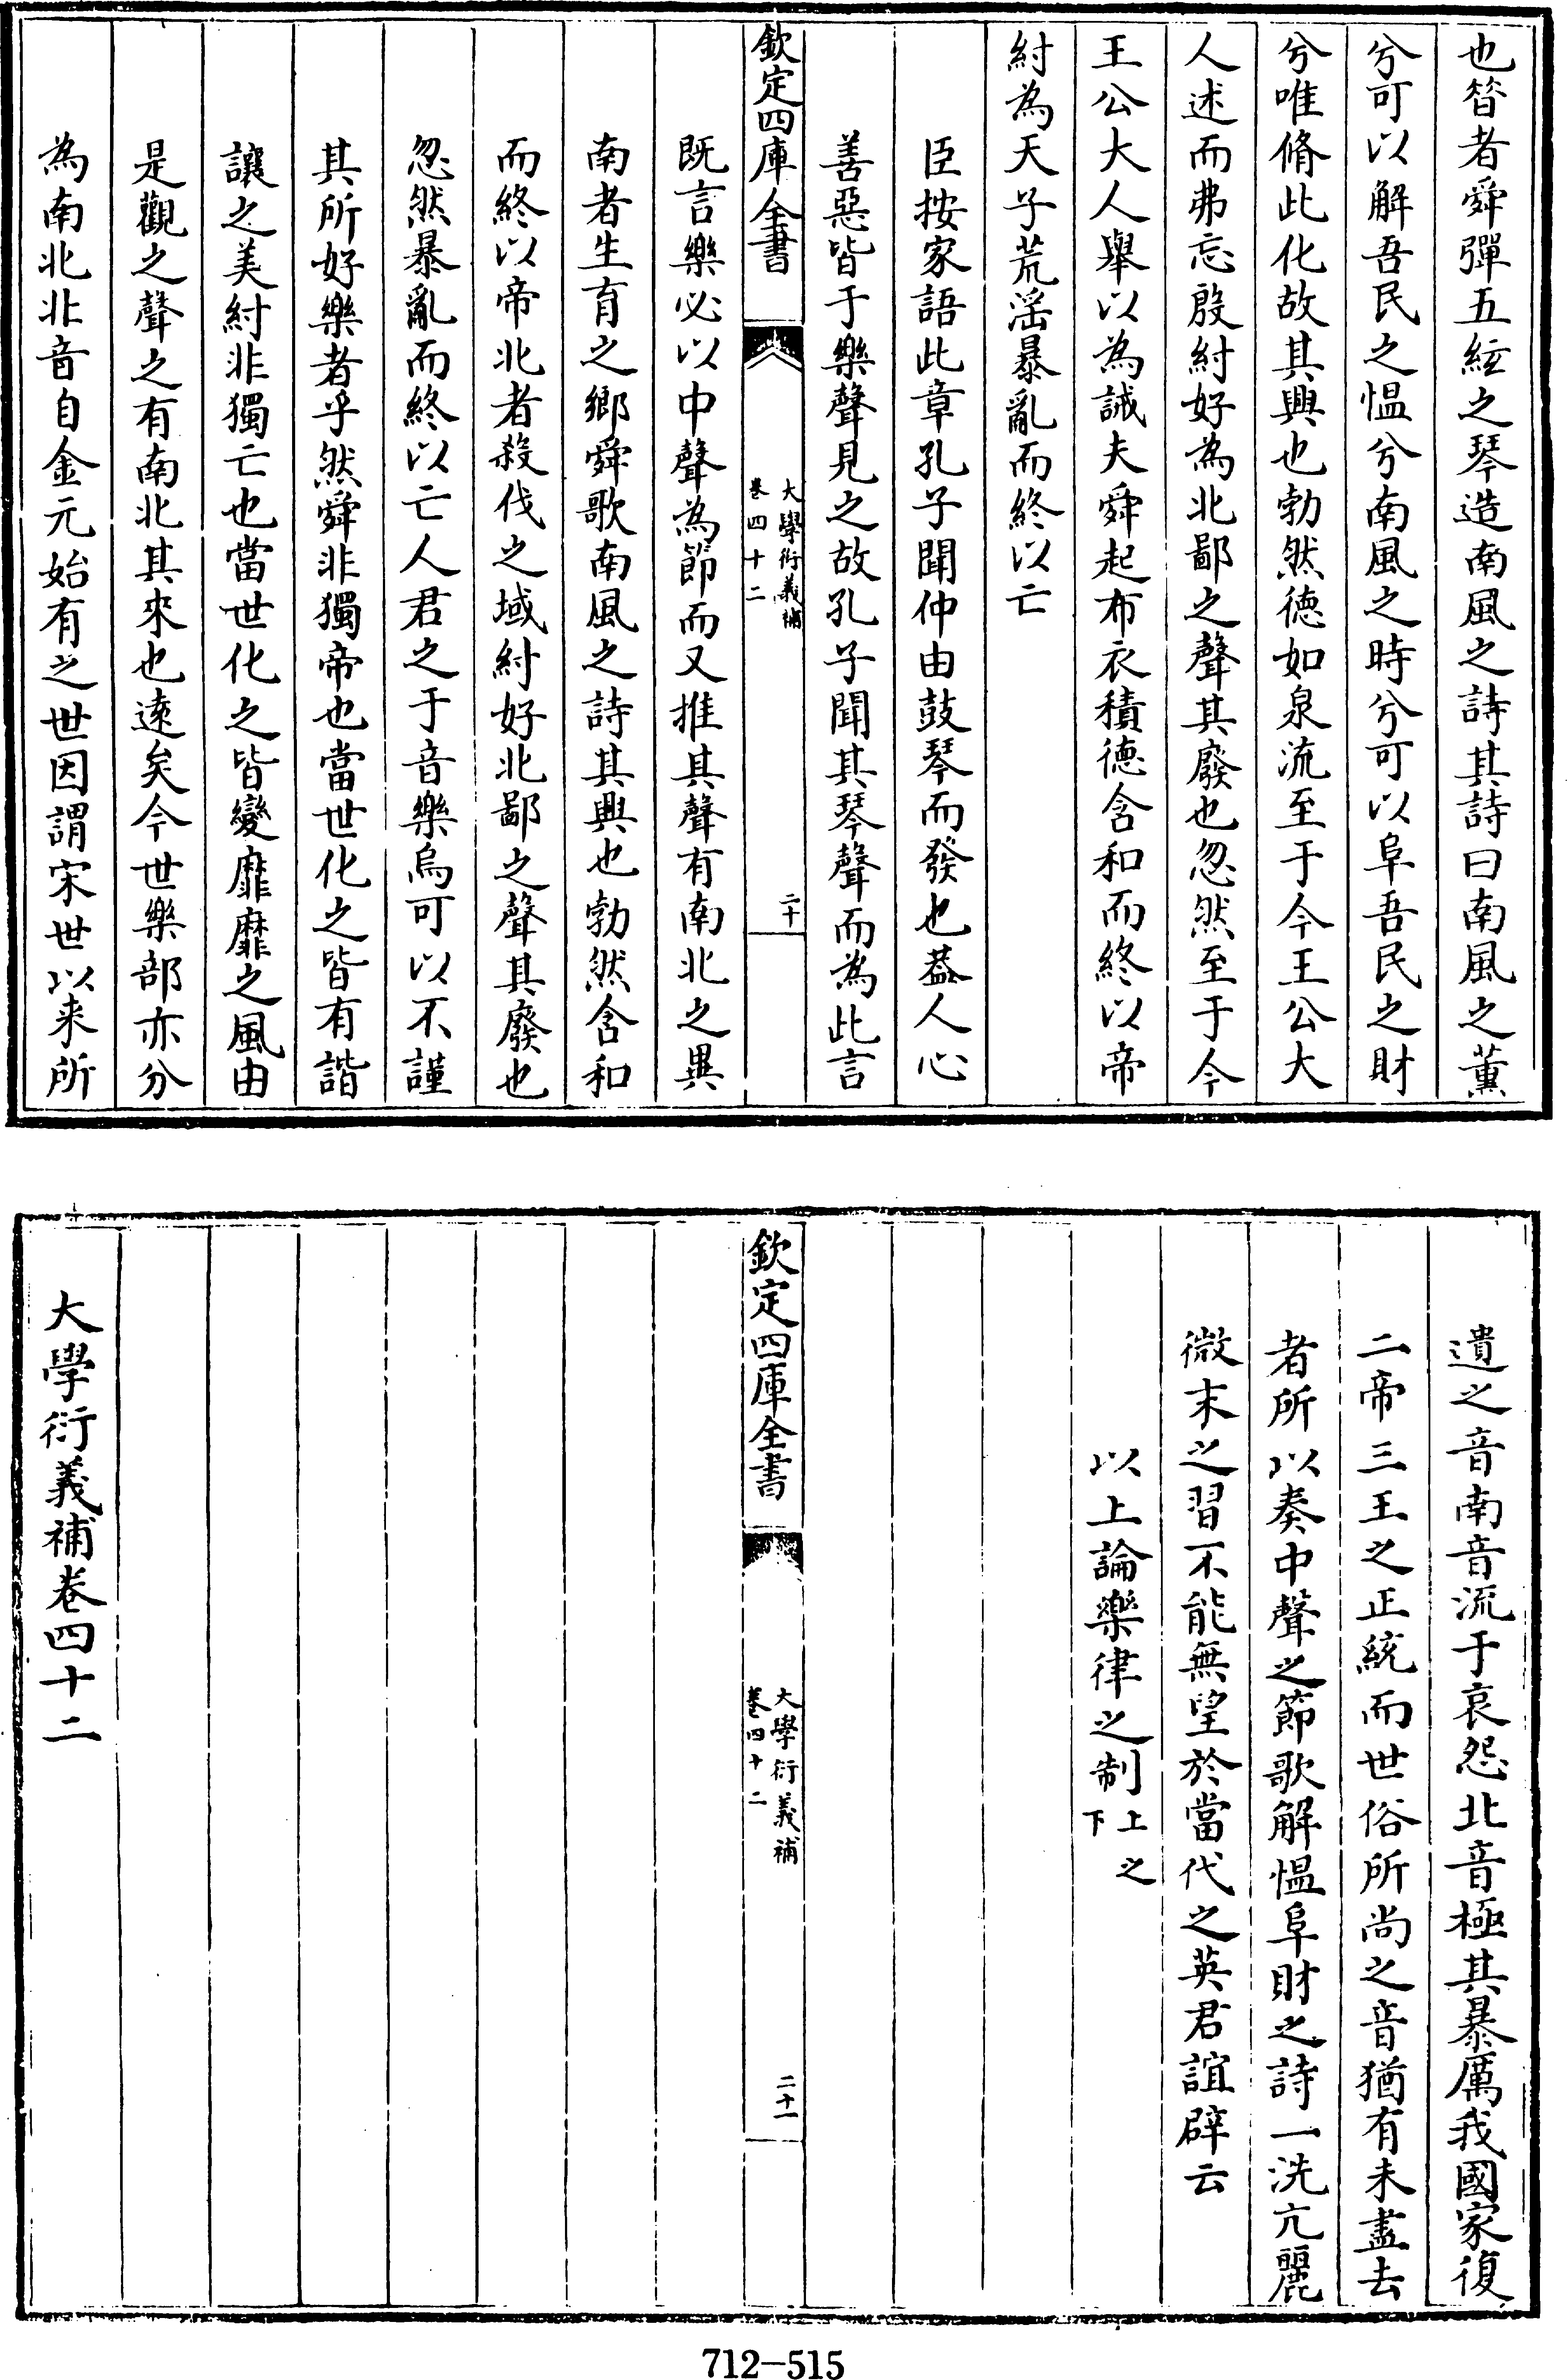 也昝者舜彈五絃之琴造南風之詩其詩曰南風之薰
兮可以解吾民之愠兮南風之時兮可以阜吾民之財
兮唯脩此化故其興也勃然徳如泉流至于今王公大
人述而弗忘殷紂好為北鄙之聲其廢也忽然至于今
王公大人舉以為誡夫舜起布衣積德含和而終以帝
紂為天子荒滛暴亂而終以亡
臣按家語此章孔子聞仲由鼓琴而發也葢人心
善惡皆于樂聲見之故孔子聞其琴聲而為此言
欽定四庫全書
大學衍義補
卷四十二
二十
既言樂必以中聲為節而又推其聲有南北之異
南者生育之鄉舜歌南風之詩其興也勃然含和
而終以帝北者殺伐之域紂好北鄙之聲其廢也
忽然暴亂而終以亡人君之于音樂烏可以不謹
其所好樂者乎然舜非獨帝也當世化之皆有諧
讓之美紂非獨亡也當世化之皆變靡靡之風由
是觀之聲之有南北其來也遠矣今世樂部亦分
為南北北音自金元始有之世因謂宋世以来所
遺之音南音流于哀怨北音極其暴厲我國家復
二帝三王之正統而世俗所尚之音猶有未盡去
者所以奏中聲之節歌解愠阜財之詩一洗亢麗
微末之習不能無望於當代之英君誼辟云
以上論樂律之制上之
下
欽定四庫全書
大學衍義補
卷四十二
二十一
大學衍義補卷四十二
712-515